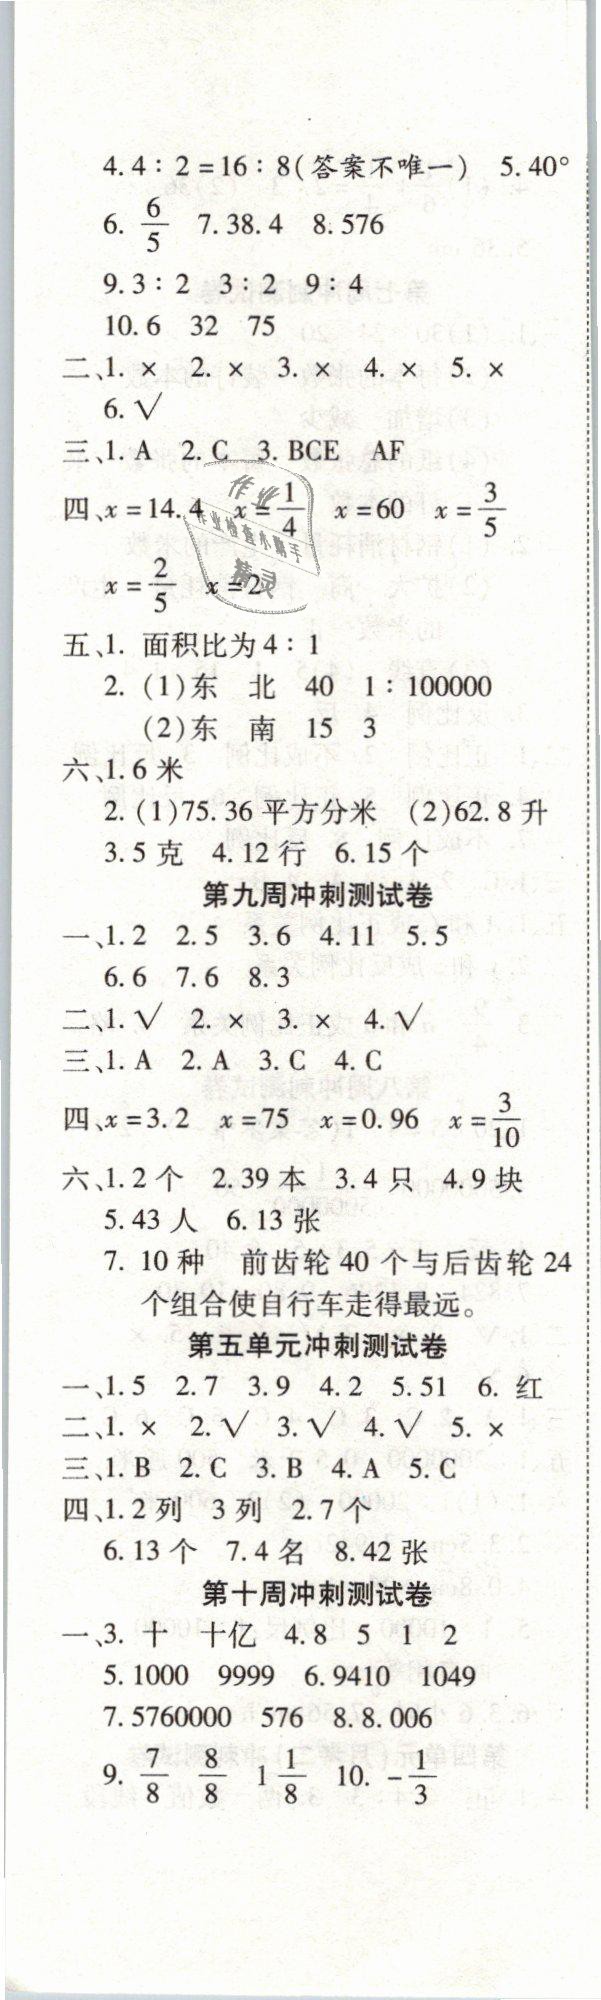 4.4∶2=16∶8(答案不唯一) 5.40°
6. 6/5 7.38.4 8.576
9.3∶2 3∶2 9∶4
10.6 32 75
二、1.× 2.× 3.× 4.× 5.×
6.√
三、1.A 2.C 3.BCE AF
四、x=14.4 x=1/4 x=60 x=3/5
x=2/5 x=2
作业
作业检查小助手
精灵
五、1. 面积比为4∶1
2. (1)东 北 40 1∶100000
(2)东 南 15 3
六、1.6米
2.(1)75.36平方分米 (2)62.8升
3.5克 4.12行 6.15个
第九周冲刺测试卷
一、1.2 2.5 3.6 4.11 5.5
6.6 7.6 8.3
二、1.√ 2.× 3.× 4.√
三、1.A 2.A 3.C 4.C
四、x=3.2 x=75 x=0.96 x=3/10
六、1.2个 2.39本 3.4只 4.9块
5.43人 6.13张
7. 10种 前齿轮40个与后齿轮24
个组合使自行车走得最远。
第五单元冲刺测试卷
一、1.5 2.7 3.9 4.2 5.51 6. 红
二、1.× 2.√ 3.√ 4.√ 5.×
三、1.B 2.C 3.B 4.A 5.C
四、1.2列 3列 2.7个
6.13个 7.4名 8.42张
第十周冲刺测试卷
一、3. 十 十亿 4.8 5 1 2
5.1000 9999 6.9410 1049
7.5760000 576 8.8.006
9. 7/8 8/8 1 1/8 10. -1/3